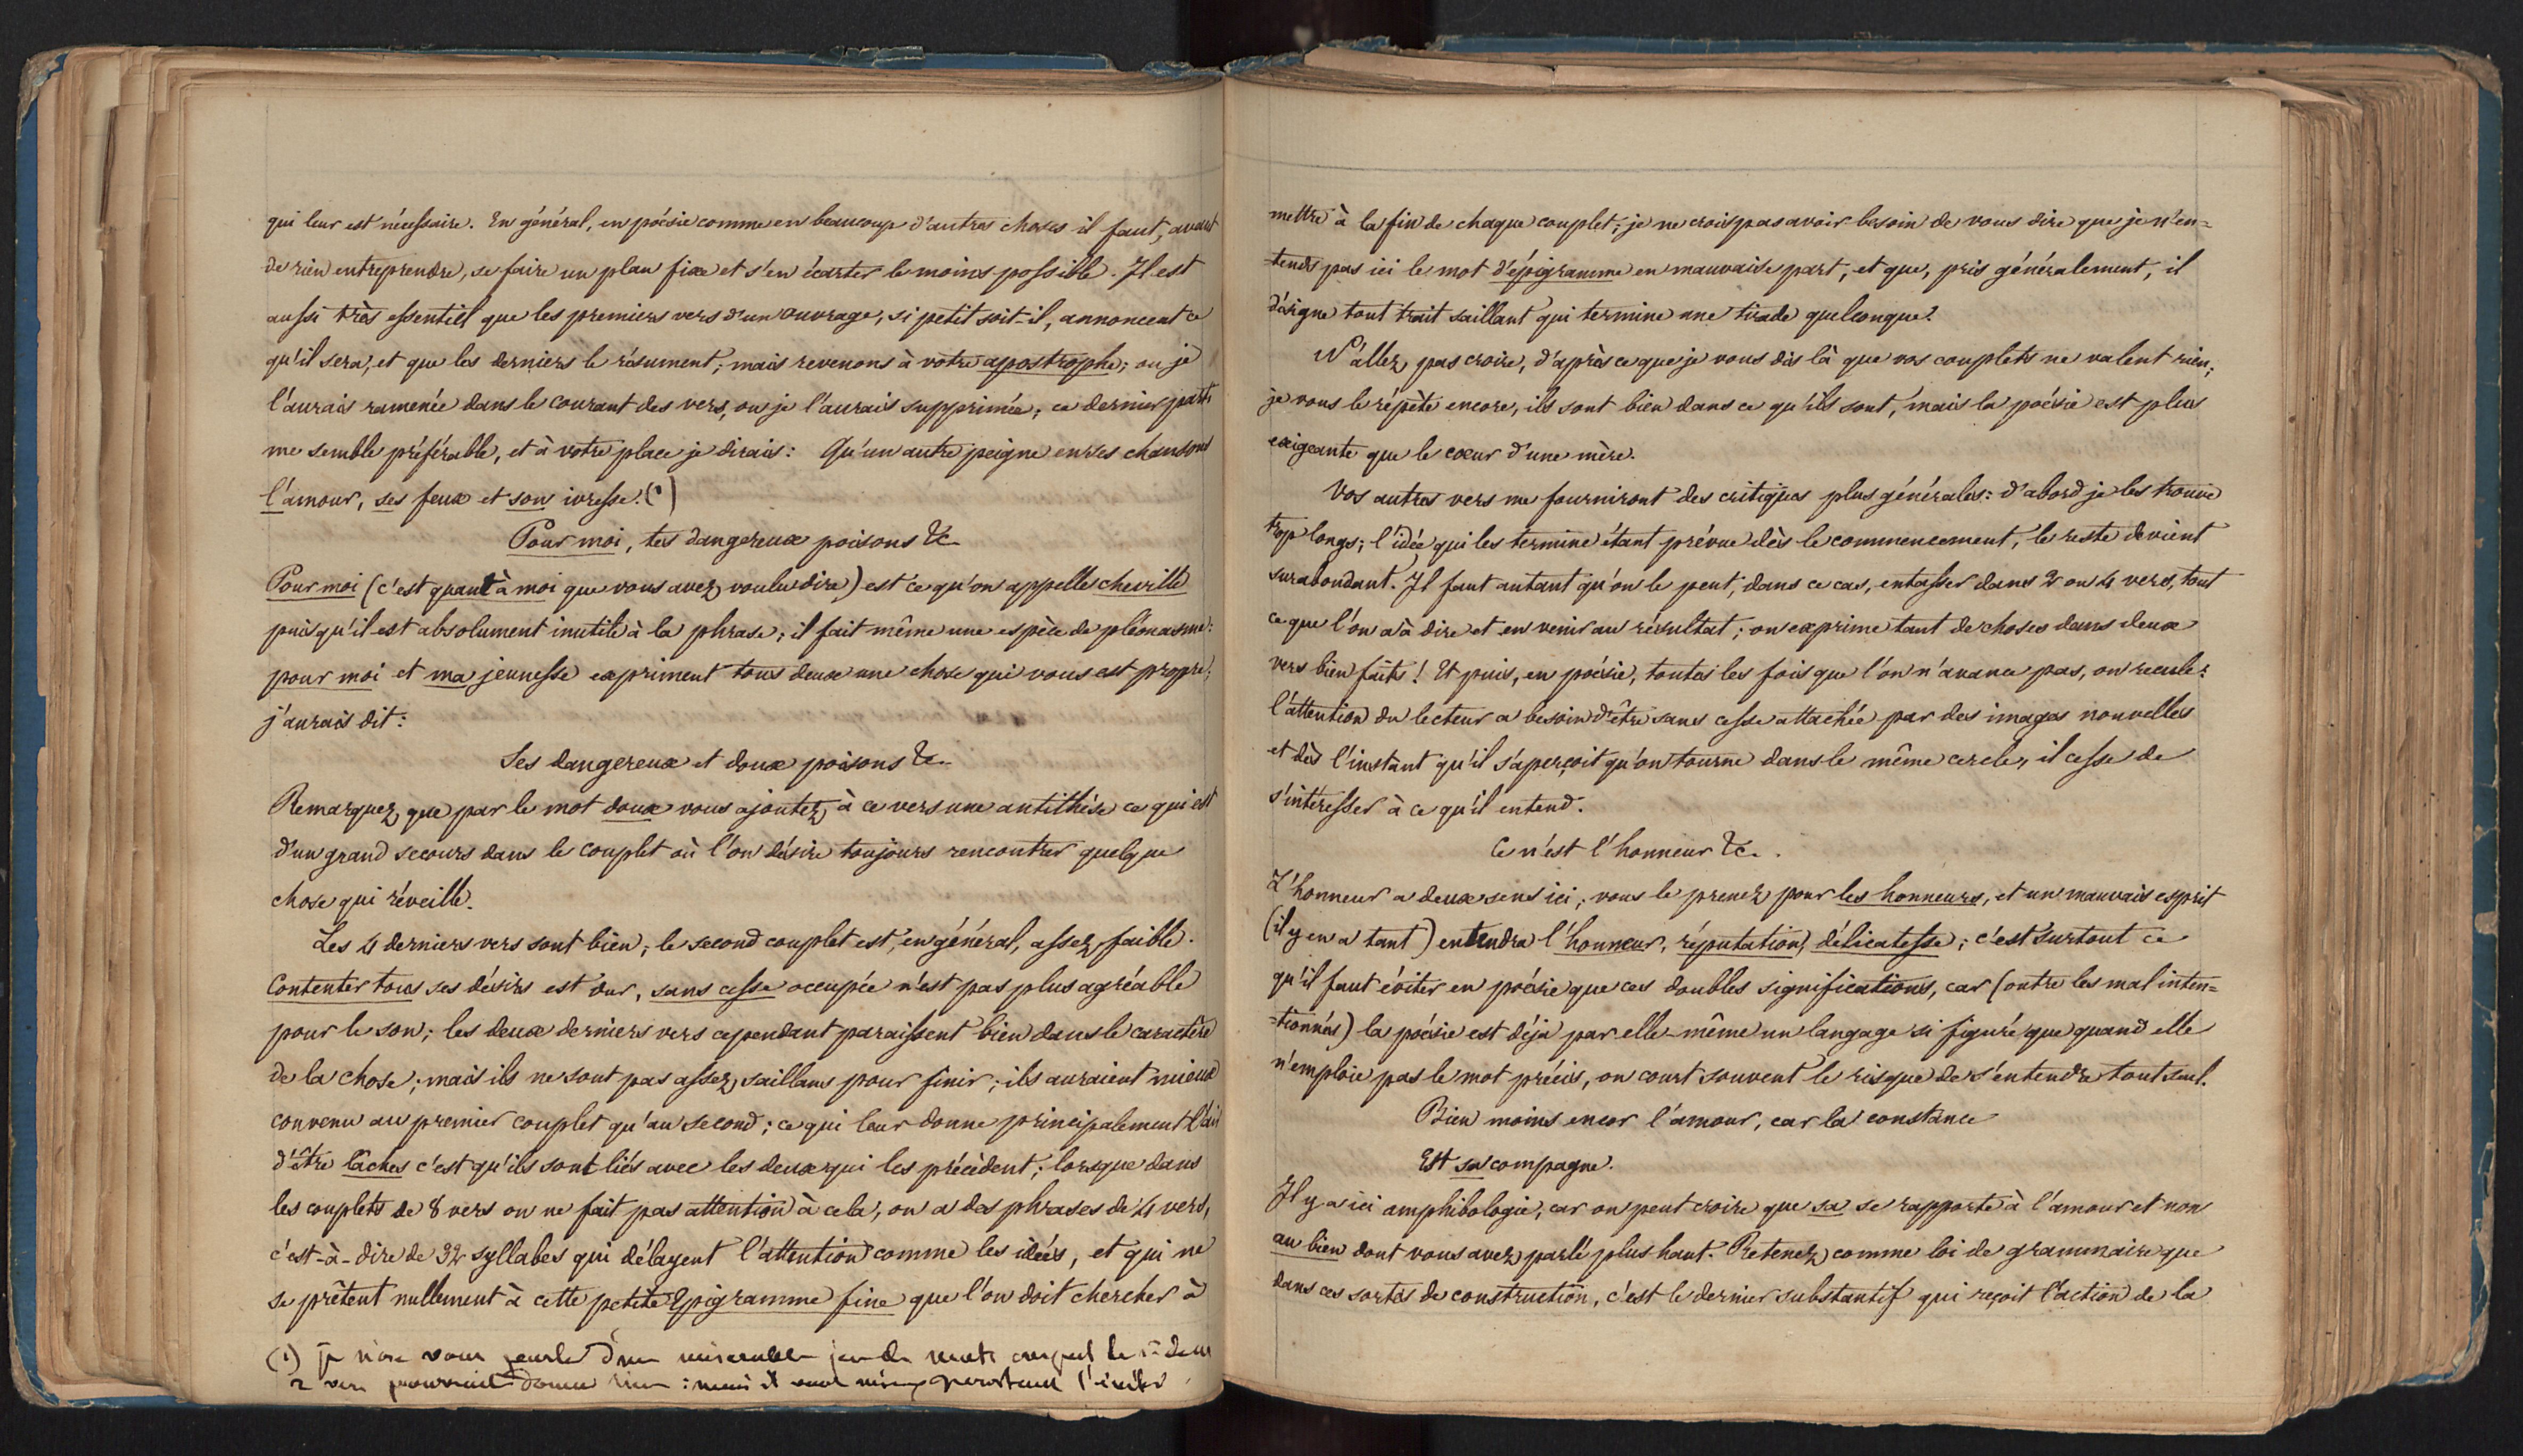 qui leur est nécessaire. En général, en poésie comme en beaucoup d'autres choses il faut, avant
de rien entreprendre, se faire un plan fixe et s'en écarter le moins possible. Il est
aussi très essentiel que les premiers vers d'un ouvrage, si petit soit-il, annoncent ce
qu'il sera, et que les derniers le résument; mais revenons à votre apostrophe; ou je
l'aurais ramenée dans le courant des vers, ou je l'aurais supprimée; ce dernier parti
me semble préférable, et à votre place je dirais: Qu'un autre peigne en ses chansons
l'amour, ses feux et son ivresse. (1)
Pour moi, tes dangereux poisons &c
Pour moi (c'est quant à moi que vous avez voulu dire) est ce qu'on appelle cheville
puisqu'il est absolument inutile à la phrase; il fait même une espèce de pléonasme:
pour moi et ma jeunesse expriment tous deux une chose qui vous est propre;
j'aurais dit:
Ses dangereux et doux poisons &c.
Remarquez que par le mot doux vous ajoutez à ce vers une antithèse ce qui est
d'un grand secours dans le couplet où l'on désire toujours rencontrer quelque
chose qui réveille.
Les 4 derniers vers sont bien; le second couplet est, en général, assez faible.
Contenter tous ses désirs est dur, sans cesse occupée n'est pas plus agréable
pour le son; les deux derniers vers cependant paraissent bien dans le caractère
de la chose; mais ils ne sont pas assez saillans pour finir; ils auraient mieux
convenu au premier couplet qu'au second; ce qui leur donne principalement l'air
d'être lâches c'est qu'ils sont liés avec les deux qui les précèdent; lorsque dans
les couplets de 8 vers on ne fait pas attention à cela, on a des phrases de 4 vers,
c'est-à-dire de 32 syllabes qui délayent l'attention comme les idées, et qui ne
se prêtent nullement à cette petite Epigramme fine que l'on doit chercher à
(1) je n'ose vous d'un jeu de mots
2 vers pourrait : mais il vaut mieux l'éviter
mettre à la fin de chaque couplet; je ne crois pas avoir besoin de vous dire que je n'en=
=tends pas ici le mot d'épigramme en mauvaise part, et que, pris généralement, il
désigne tout trait saillant qui termine une tirade quelconque.
N'allez pas croire, d'après ce que je vous dis là que vos couplets ne valent rien;
je vous le répète encore, ils sont bien dans ce qu'ils sont, mais la poésie est plus
exigeante que le cœur d'une mère.
Vos autres vers me fourniront des critiques plus générales: d'abord je les trouve
trop longs; l'idée qui les termine étant prévue dès le commencement, le reste devient
surabondant. Il faut autant qu'on le peut, dans ce cas, entasser dans 2 ou 4 vers, tout
ce que l'on a à dire et en venir au résultat; on exprime tant de choses dans deux
vers bien faits! Et puis, en poésie, toutes les fois que l'on n'avance pas, on recule:
l'attention du lecteur a besoin d'être sans cesse attachée par des images nouvelles
et dès l'instant qu'il s'aperçoit qu'on tourne dans le même cercle, il cesse de
s'intéresser à ce qu'il entend.
Ce n'est l'honneur &c.
L'honneur a deux sens ici; vous le prenez pour les honneurs, et un mauvais esprit
(il y en a tant) entendra l'honneur, réputation, délicatesse; c'est surtout ce
qu'il faut éviter en poésie que ces doubles significations, car (outre les mal inten=
=tionnés) la poésie est déjà par elle-même un langage si figuré que quand elle
n'emploie pas le mot précis, on court souvent le risque de s'entendre tout seul.
Bien moins encor l'amour, car la constance
Est sa compagne.
Il y a ici amphibologie, car on peut croire que sa se rapporte à l'amour et non
au bien dont vous avez parlé plus haut. Retenez comme loi de grammaire que
dans ces sortes de construction, c'est le dernier substantif qui reçoit l'action de la